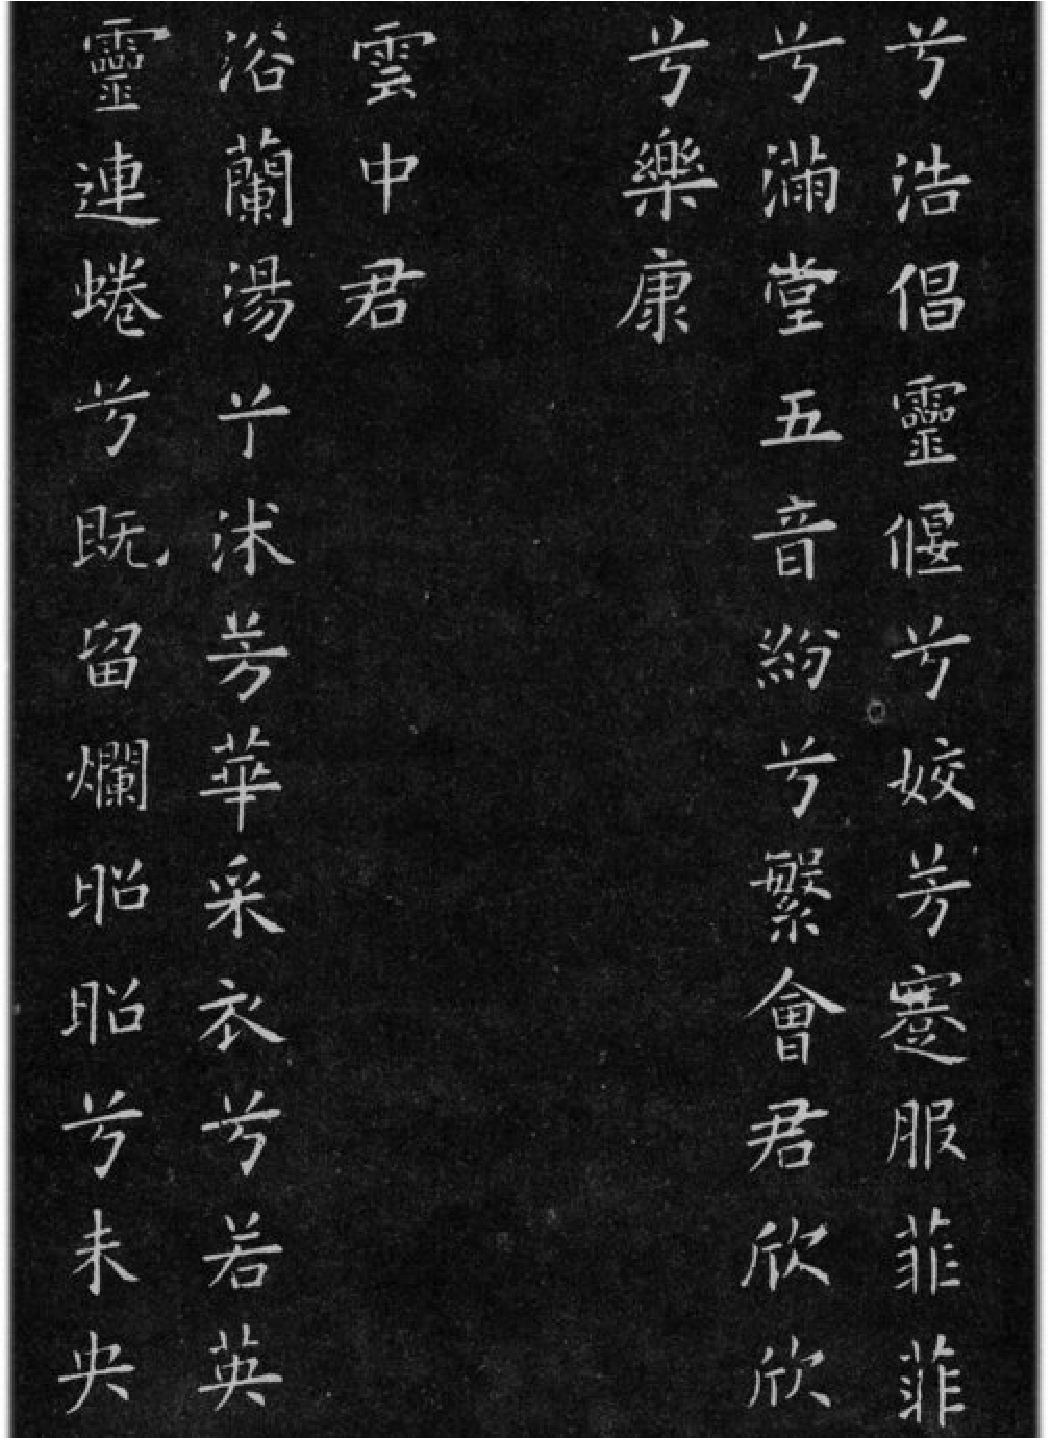 兮浩倡靈偃兮姣芳蹇服菲菲
兮滿堂五音紛兮繁會君欣欣
兮樂康
雲中君
浴蘭湯兮沭芳華采衣兮若英
靈連蜷兮既留爛昭昭兮未央